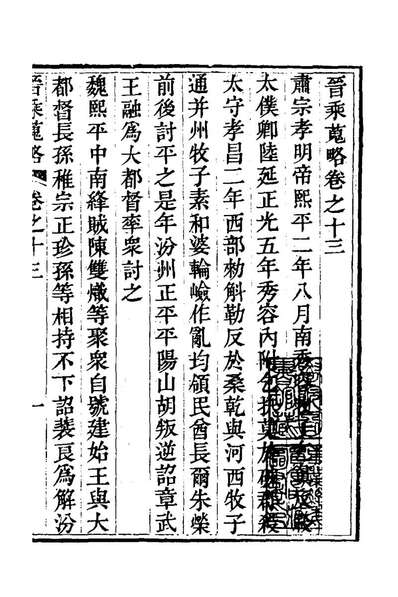 晉乘蒐略卷之十三
肅宗孝明帝熙平二年八月南秀反殺
太僕卿陸延正光五年秀容內附乞扶莫於破郡殺
太守孝昌二年西部勑斛勒反於桑乾與河西牧子
通并州牧子素和婆輪嶮作亂均領民酋長爾朱榮
前後討平之是年汾州正平平陽山胡叛逆詔章武
王融爲大都督率衆討之
魏熙平中南絳賊陳雙熾等聚衆自號建始王與大
都督長孫稚宗正珍孫等相持不下詔裴良爲解汾
晉乘蒐略 卷之十三 一